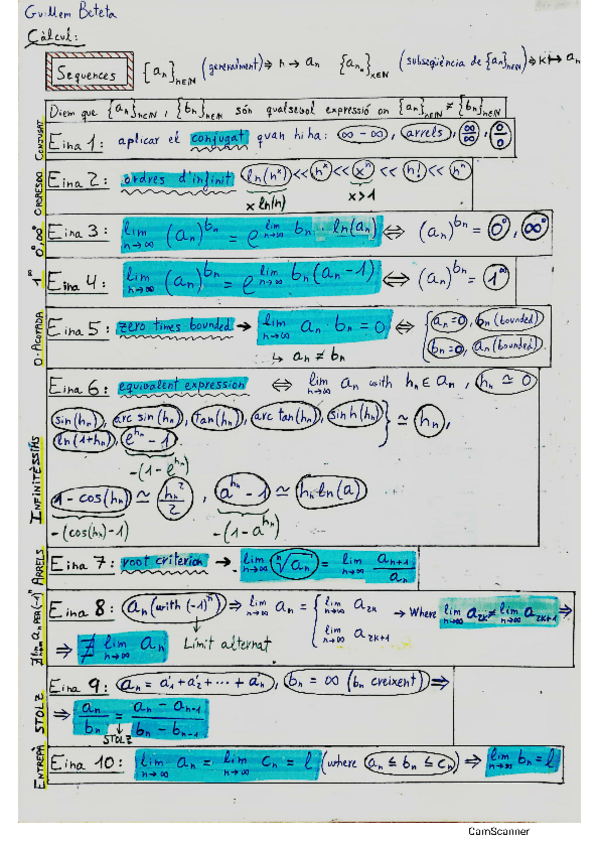 Guillem Beteta
Càlcul:
Sequences {aₙ}ₙ∈ℕ (generalment) ⇒ n → aₙ {aₙₖ}ₖ∈ℕ (subseqüència de {aₙ}ₙ∈ℕ) ⇒ k ↦ aₙ
Diem que {aₙ}ₙ∈ℕ, {bₙ}ₙ∈ℕ són qualsevol expressió on {aₙ}ₙ∈ℕ ≠ {bₙ}ₙ∈ℕ
CONJUGAT
Eina 1: aplicar el conjugat quan hi ha: ∞ - ∞, arrels, ∞/∞, 0/0
Eina 2: ordres d'infinit ln(n^x) << n^x << x^n << n! << n^n
x ln(n) x>1
0⁰, ∞⁰
Eina 3: lim n→∞ (aₙ)^bₙ = e^(lim n→∞ bₙ · ln(aₙ)) ⇔ (aₙ)^bₙ = 0⁰, ∞⁰
1^∞
Eina 4: lim n→∞ (aₙ)^bₙ = e^(lim n→∞ bₙ(aₙ-1)) ⇔ (aₙ)^bₙ = 1^∞
0·ACOTADA
Eina 5: zero times bounded → lim n→∞ aₙ · bₙ = 0 ⇔ { aₙ=0, bₙ (bounded)
bₙ=0, aₙ (bounded)
↳ aₙ ≠ bₙ
INFINITÈSSIMS
Eina 6: equivalent expression ⇔ lim n→∞ aₙ with hₙ ∈ aₙ, hₙ ≃ 0
sin(hₙ), arc sin(hₙ), tan(hₙ), arc tan(hₙ), sinh(hₙ)
ln(1+hₙ), e^hₙ - 1 } ≃ hₙ,
-(1-e^hₙ)
1-cos(hₙ) ≃ hₙ²/2, a^hₙ - 1 ≃ hₙ ln(a)
-(cos(hₙ)-1) -(1-a^hₙ)
ARRELS
Eina 7: root criterion → lim n→∞ ⁿ√aₙ = lim n→∞ aₙ₊₁/aₙ
∄ lim aₙ PER (-1)ⁿ
Eina 8: aₙ (with (-1)ⁿ) ⇒ lim n→∞ aₙ = { lim n→∞ a₂ₖ
lim n→∞ a₂ₖ₊₁
→ Where lim n→∞ a₂ₖ ≠ lim n→∞ a₂ₖ₊₁ ⇒
⇒ ∄ lim n→∞ aₙ Límit alternat
STOLZ
Eina 9: aₙ = a'₁ + a'₂ + ··· + a'ₙ, bₙ = ∞ (bₙ creixent) ⇒
⇒ aₙ/bₙ = (aₙ - aₙ₋₁)/(bₙ - bₙ₋₁)
STOLZ
ENTREPÀ
Eina 10: lim n→∞ aₙ = lim n→∞ cₙ = l (where aₙ ≤ bₙ ≤ cₙ) ⇒ lim n→∞ bₙ = l
CamScanner